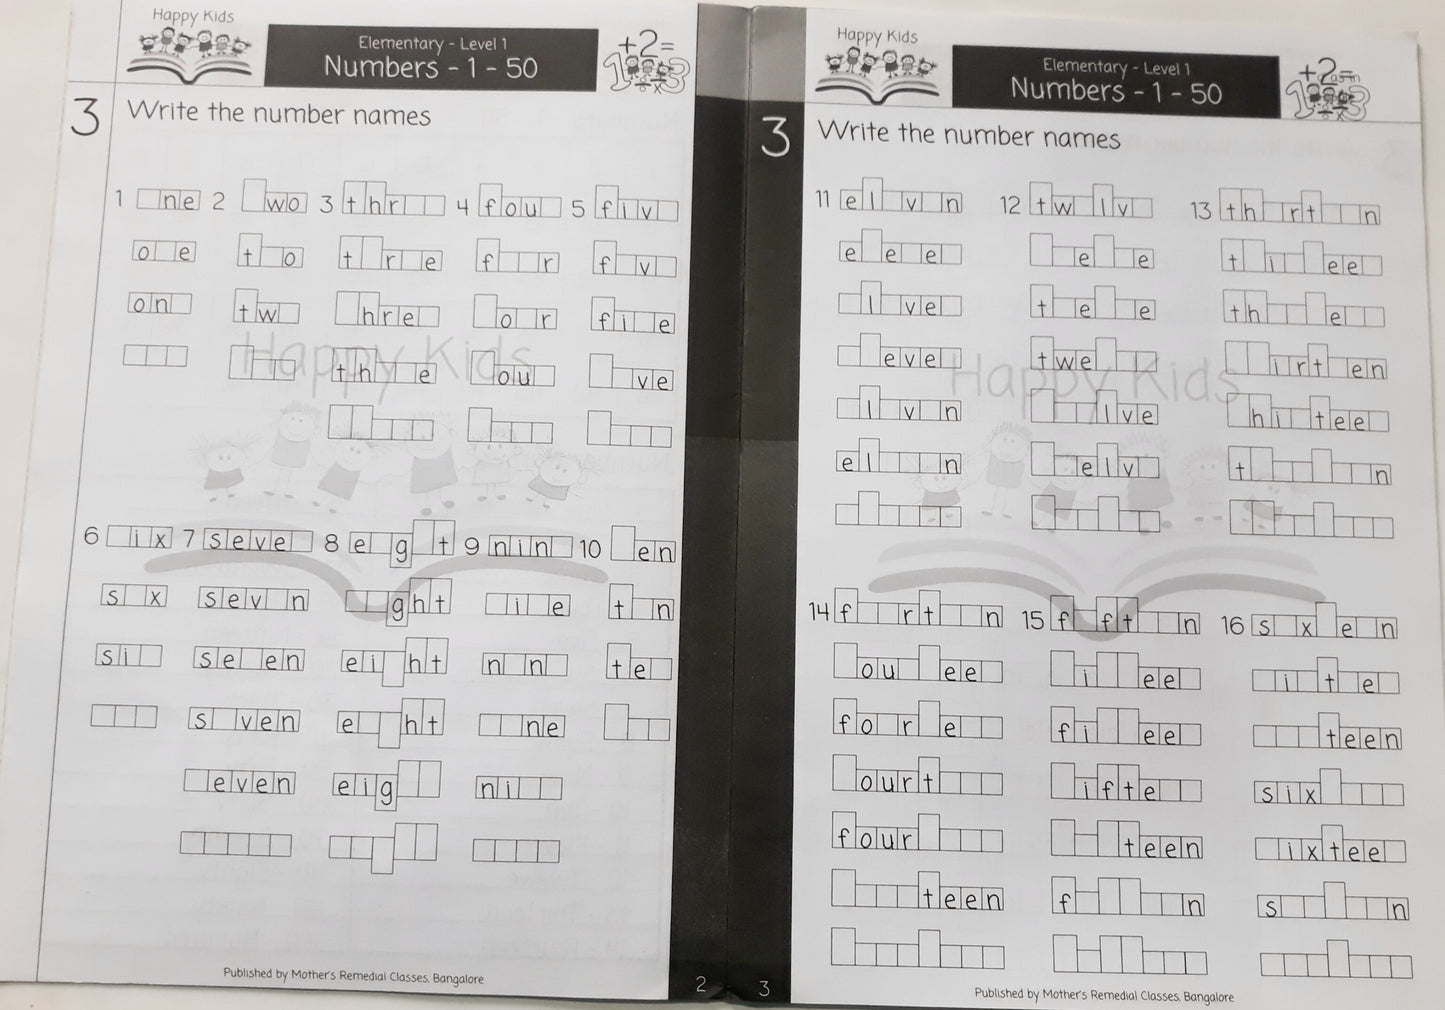 Happy Kids
Elementary - Level 1
Numbers - 1 - 50
+2=
1 3
÷ x
3 Write the number names
1 ne 2 wo 3 thr 4 fou 5 fiv
o e t o t r e f r f v
on tw hre o r fi e
th e ou ve
Happy Kids
6 ix 7 seve 8 e g t 9 nin 10 en
s x sev n ght i e t n
si se en ei ht n n te
s ven e ht ne
even eig ni
Published by Mother's Remedial Classes, Bangalore
2
Happy Kids
Elementary - Level 1
Numbers - 1 - 50
+2=
1 3
÷ x
3 Write the number names
11 el v n 12 tw lv 13 th rt n
e e e e e t i ee
l ve t e e th e
eve twe irt en
l v n lve hi tee
el n elv t n
Happy Kids
14 f rt n 15 f ft n 16 s x e n
ou ee i ee i t e
fo r e fi ee teen
ourt ifte six
four teen ixtee
teen f n s n
Published by Mother's Remedial Classes, Bangalore
3